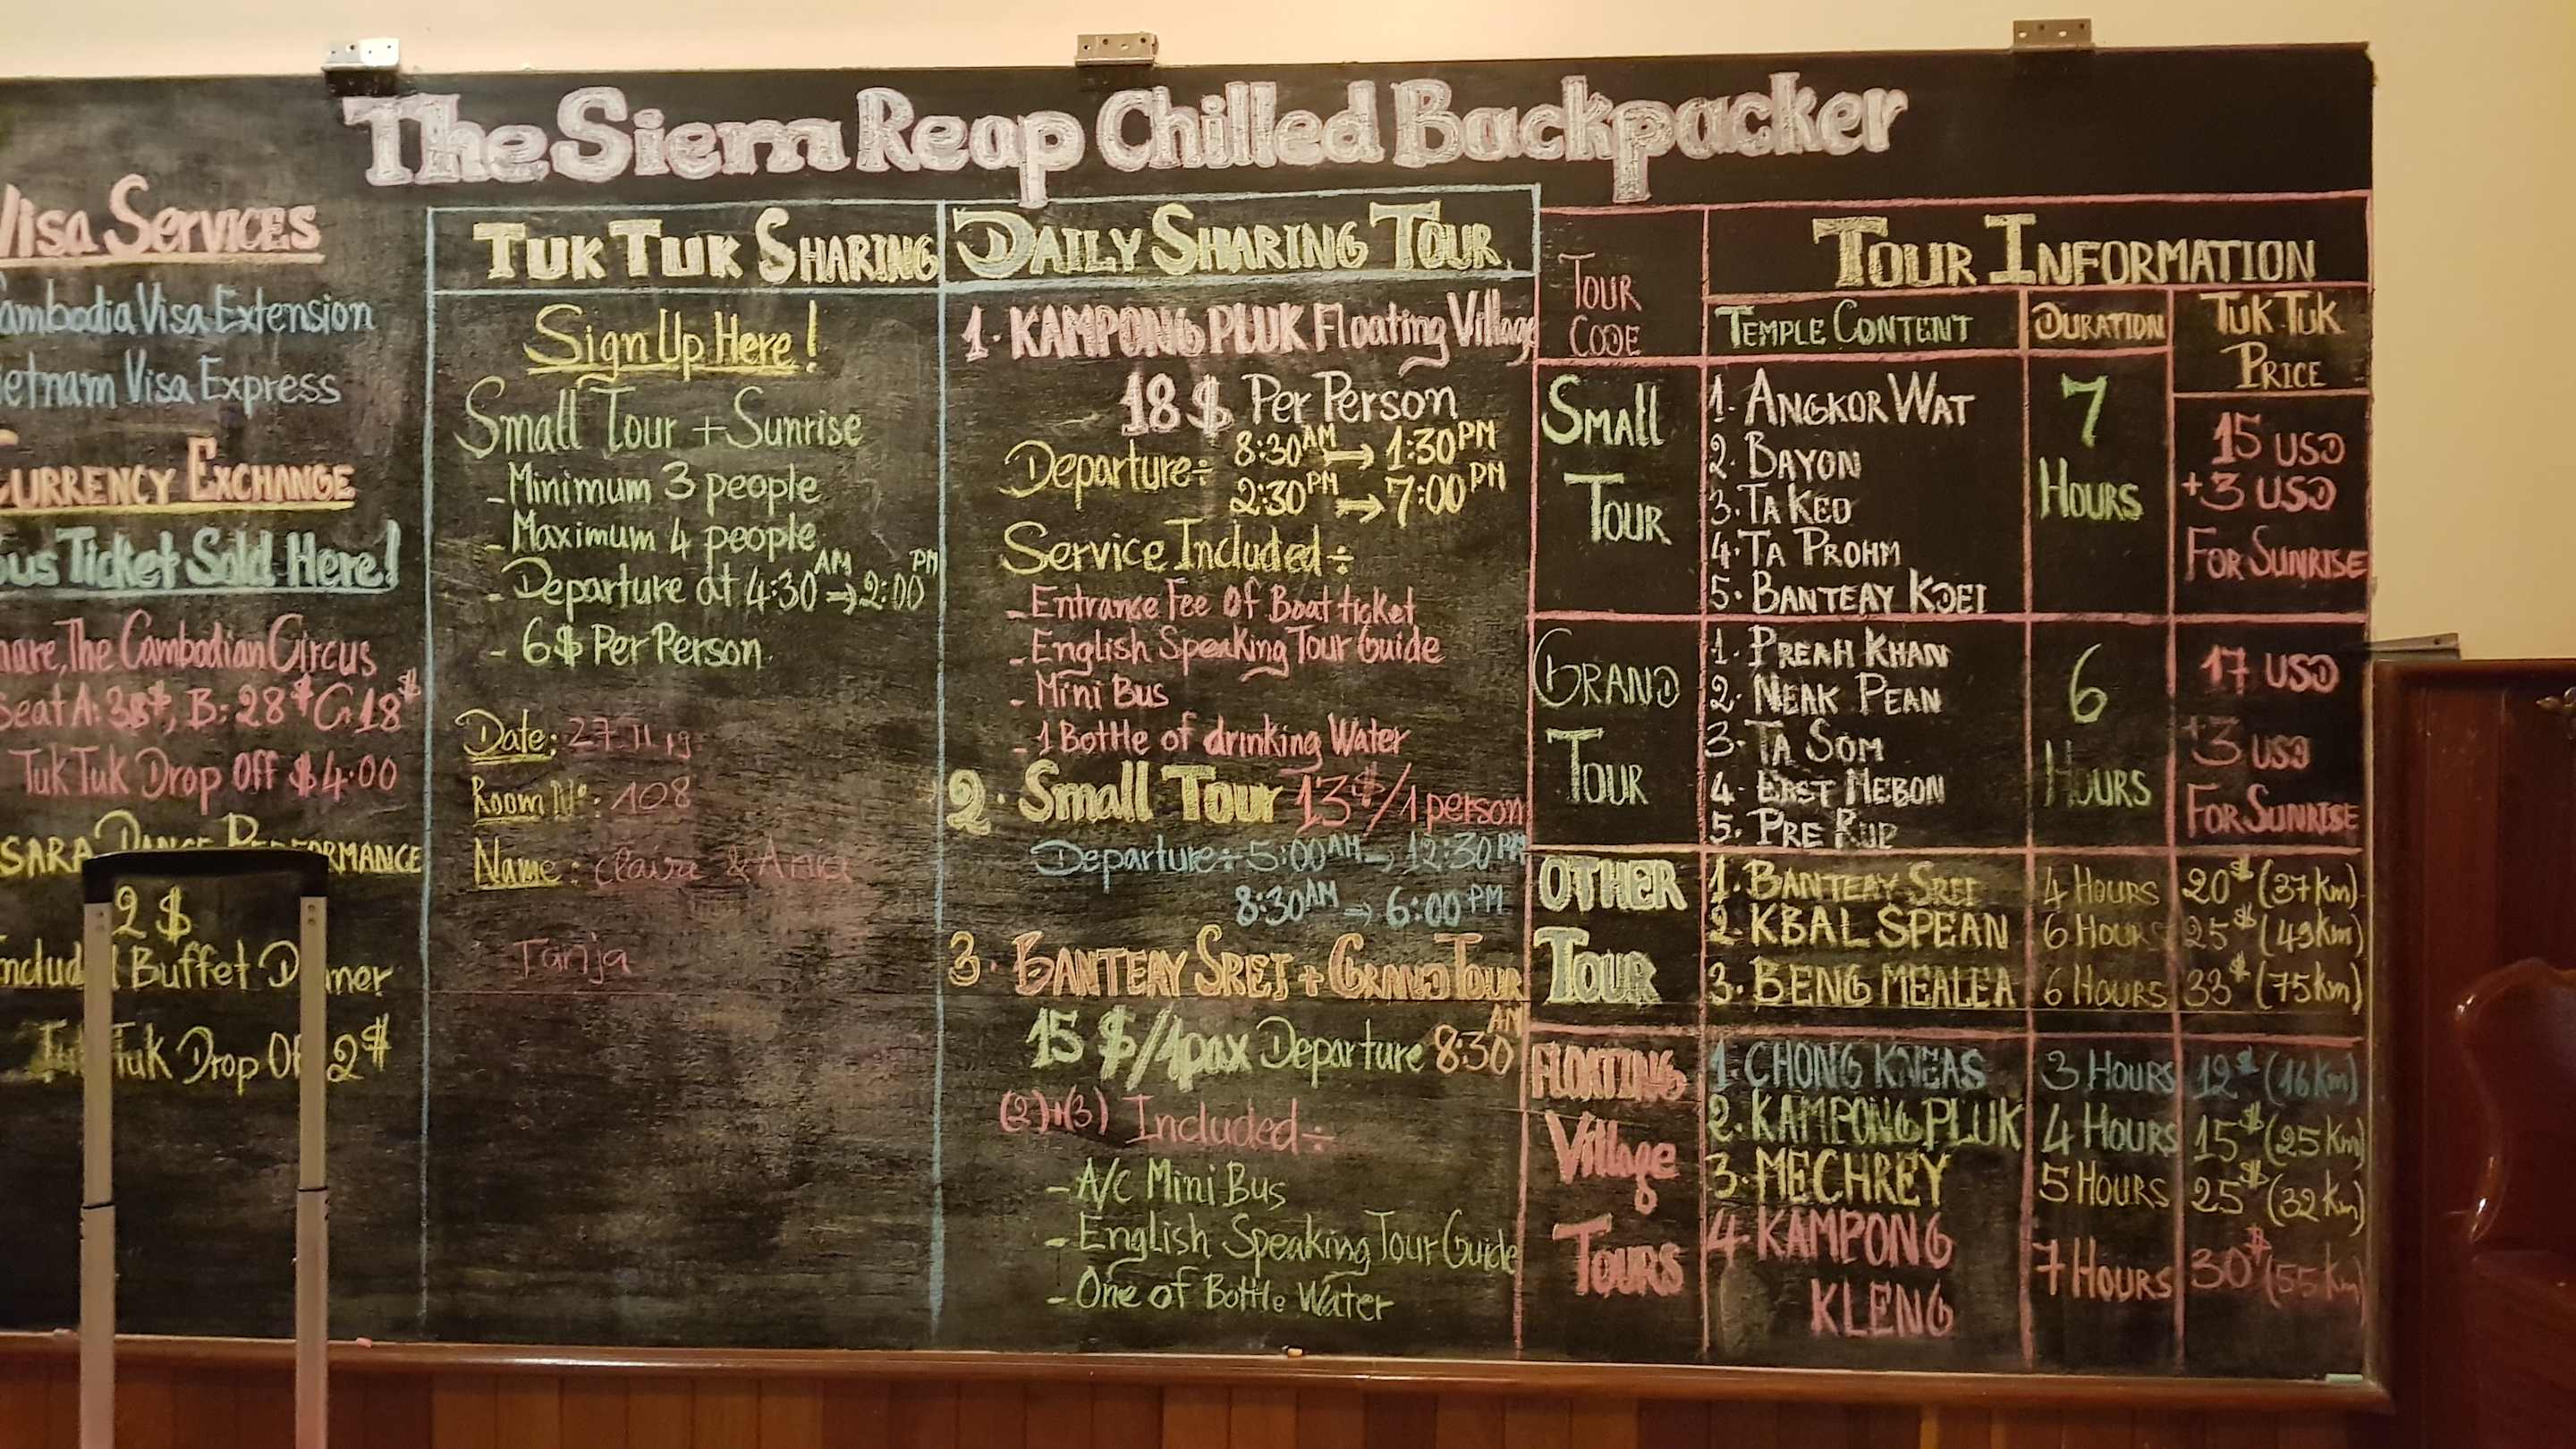 The Sierra Reap Chilled Backpacker
Visa Services
Cambodia Visa Extension
ietnam Visa Express
Currency Exchange
Bus Ticket Sold Here!
hare, The Cambodian Circus
Seat A: 38$, B: 28$ C: 18$
Tuk Tuk Drop Off $4.00
SARA Dance Performance
2 $
nclud Buffet D nner
Tuk Tuk Drop Of 2$
TUK TUK SHARING
Sign Up Here!
Small Tour + Sunrise
- Minimum 3 people
- Maximum 4 people
- Departure at 4:30 AM → 2:00 PM
- 6$ Per Person
Date: 27 11 19
Room Nº: 108
Name: Claire & Anica
Tanja
DAILY SHARING TOUR
1. KAMPONG PLUK Floating Village
18 $ Per Person
Departure÷ 8:30 AM → 1:30 PM
2:30 PM → 7:00 PM
Service Included÷
- Entrance Fee Of Boat ticket
- English Speaking Tour Guide
- Mini Bus
- 1 Bottle of drinking Water
2. Small Tour 13$/1 person
Departure÷ 5:00 AM → 12:30 PM
8:30 AM → 6:00 PM
3. BANTEAY SREI + GRAND TOUR
15 $/1pax Departure 8:30 AM
(2)+(3) Included÷
- A/C Mini Bus
- English Speaking Tour Guide
- One of Bottle Water
TOUR CODE
TOUR INFORMATION
TEMPLE CONTENT
DURATION
TUK TUK PRICE
SMALL TOUR
1. ANGKOR WAT
2. BAYON
3. TA KEO
4. TA PROHM
5. BANTEAY KDEI
7 HOURS
15 USD
+3 USD
FOR SUNRISE
GRAND TOUR
1. PREAH KHAN
2. NEAK PEAN
3. TA SOM
4. EAST MEBON
5. PRE RUP
6 HOURS
17 USD
+3 USD
FOR SUNRISE
OTHER TOUR
1. BANTEAY SREI 4 HOURS 20$ (37Km)
2. KBAL SPEAN 6 HOURS 25$ (49Km)
3. BENG MEALEA 6 HOURS 33$ (75Km)
FLOATING Village TOURS
1. CHONG KNEAS 3 HOURS 12$ (16Km)
2. KAMPONG PLUK 4 HOURS 15$ (25Km)
3. MECHREY 5 HOURS 25$ (32Km)
4. KAMPONG KLENG 7 HOURS 30$ (55Km)